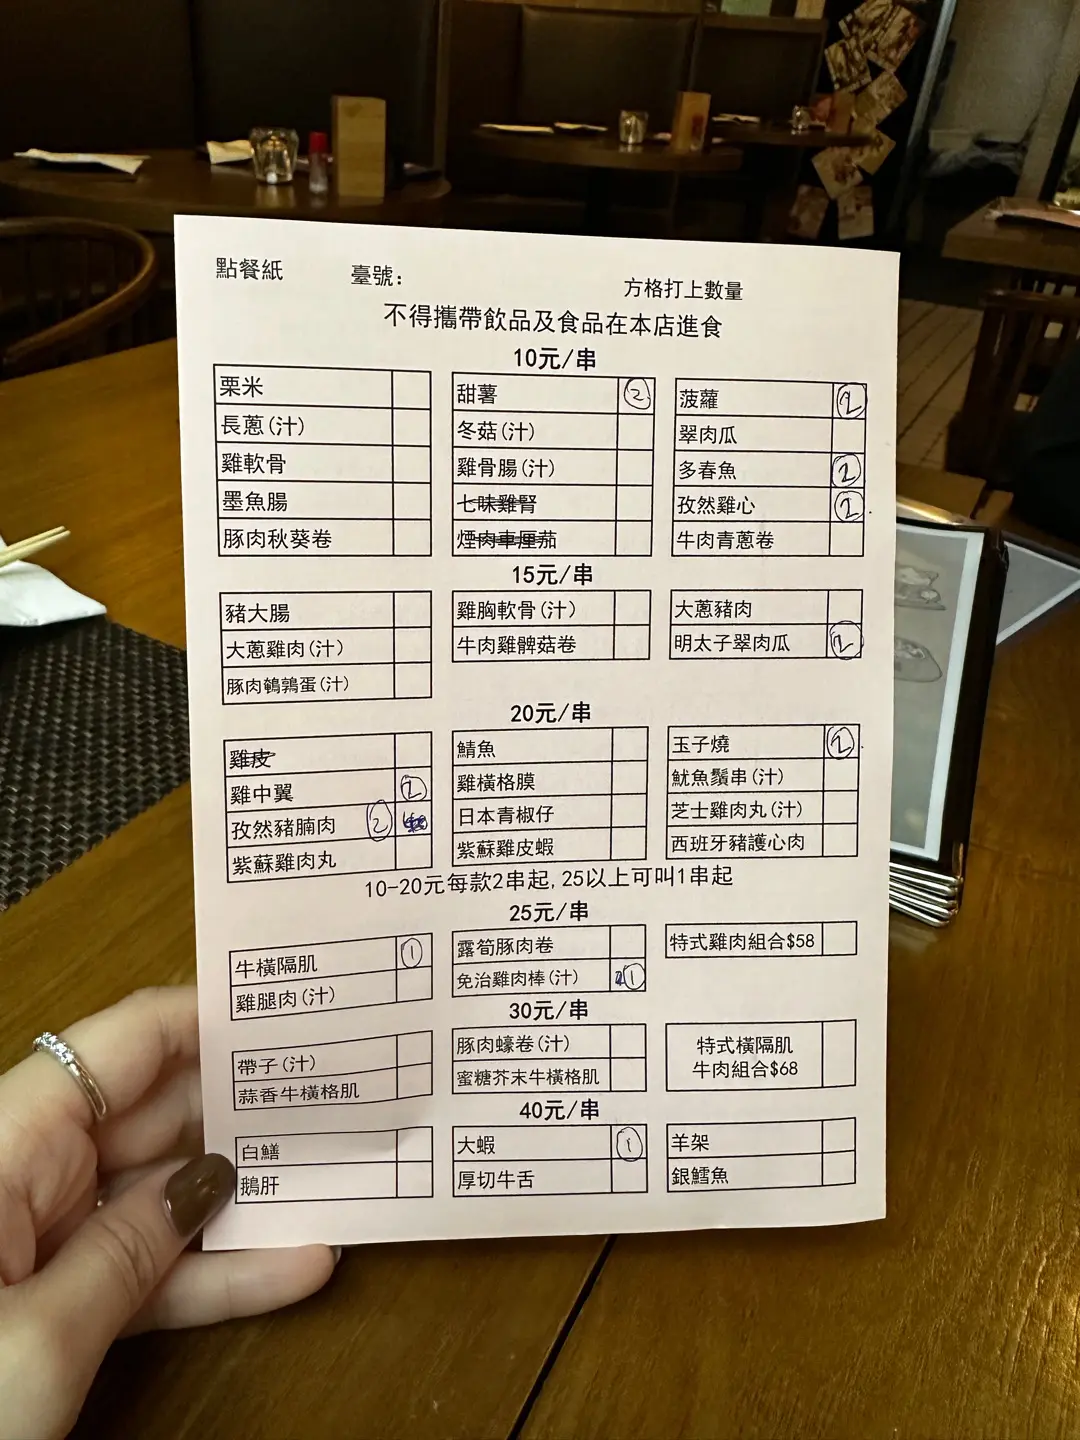 點餐紙 臺號： 方格打上數量
不得攜帶飲品及食品在本店進食
10元/串
栗米 甜薯 2 菠蘿 2
長蔥(汁) 冬菇(汁) 翠肉瓜
雞軟骨 雞骨腸(汁) 多春魚 2
墨魚腸 七味雞腎 孜然雞心 2
豚肉秋葵卷 煙肉車厘茄 牛肉青蔥卷
15元/串
豬大腸 雞胸軟骨(汁) 大蔥豬肉
大蔥雞肉(汁) 牛肉雞髀菇卷 明太子翠肉瓜 2
豚肉鵪鶉蛋(汁)
20元/串
雞皮 鯖魚 玉子燒 2
雞中翼 2 雞橫格膜 魷魚鬚串(汁)
孜然豬腩肉 2 日本青椒仔 芝士雞肉丸(汁)
紫蘇雞肉丸 紫蘇雞皮蝦 西班牙豬護心肉
10-20元每款2串起,25以上可叫1串起
25元/串
牛橫隔肌 1 露筍豚肉卷 特式雞肉組合$58
雞腿肉(汁) 免治雞肉棒(汁) 1
30元/串
帶子(汁) 豚肉蠔卷(汁) 特式橫隔肌
蒜香牛橫格肌 蜜糖芥末牛橫格肌 牛肉組合$68
40元/串
白鱔 大蝦 1 羊架
鵝肝 厚切牛舌 銀鱈魚